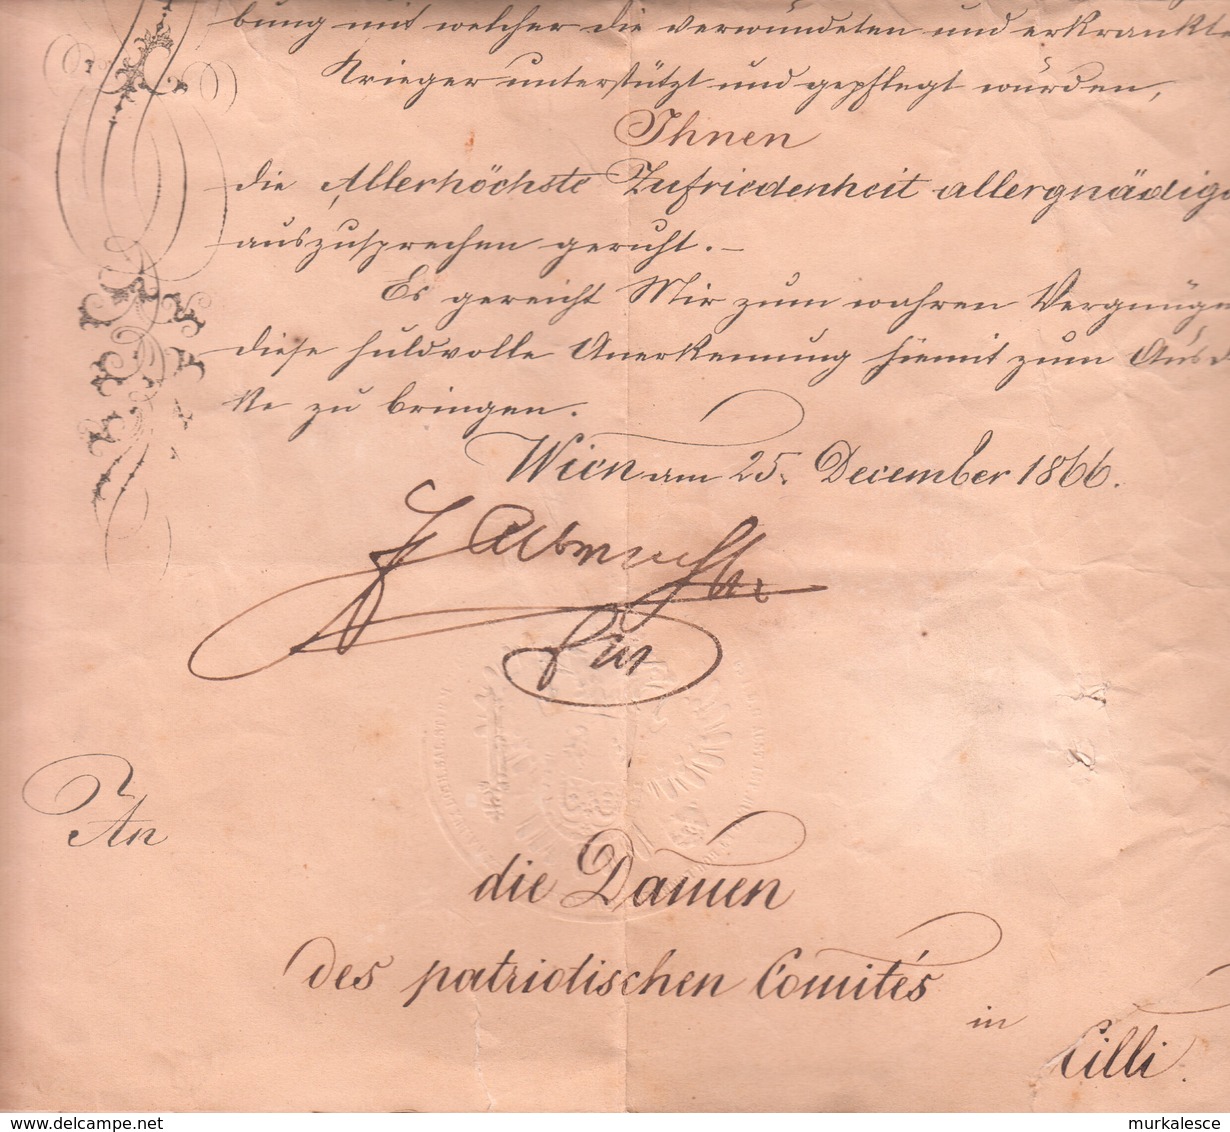 bung mit welcher die verwundeten und erkrankte
Krieger unterstützt und gepflegt wurden,
Ihnen
die Allerhöchste Zufriedenheit allergnädigs
auszusprechen geruht. –
Es gereicht Mir zum wahren Vergnüge
diese huldvolle Anerkennung hiemit zum Ausd
ke zu bringen.
Wien am 25. December 1866.
Albrecht
FM
An
die Damen
des patriotischen Comités
in
Cilli.
delcampe.net
murkalesce